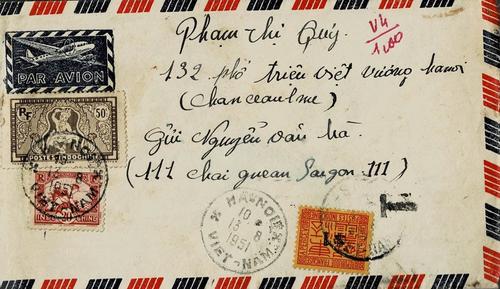 Phạm Thị Qúy
V4
1.00
132 phố triệu việt vương hanoi
(Chanceaulme)
Gửi Nguyễn Văn Hà
(111 chai quean Saigon 111)
PAR AVION
RF
50
POSTES INDOCHINE
HANOI
10
13 8
1951
VIET-NAM
T